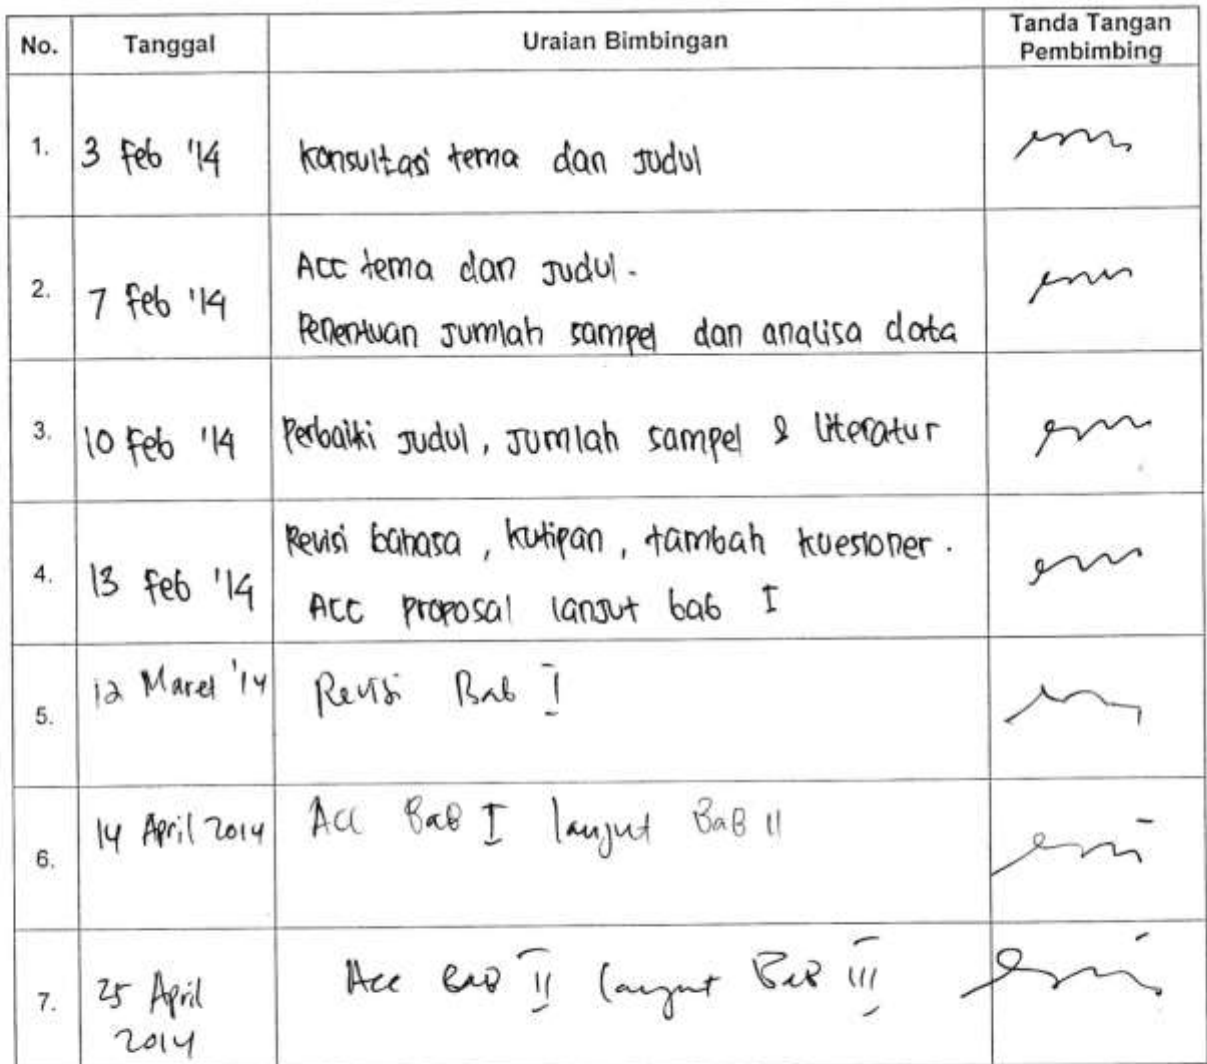 No. Tanggal Uraian Bimbingan Tanda Tangan
Pembimbing
1. 3 Feb '14 Konsultasi tema dan Judul
2. 7 Feb '14 Acc tema dan Judul.
Penentuan Jumlah sampel dan analisa data
3. 10 Feb '14 Perbaiki Judul, Jumlah sampel & literatur
4. 13 Feb '14 Revisi bahasa, kutipan, tambah kuesioner.
Acc proposal lanjut bab I
5. 12 Maret '14 Revisi Bab I
6. 14 April 2014 Acc Bab I lanjut BaB II
7. 25 April
2014 Acc BaB II lanjut BaB III